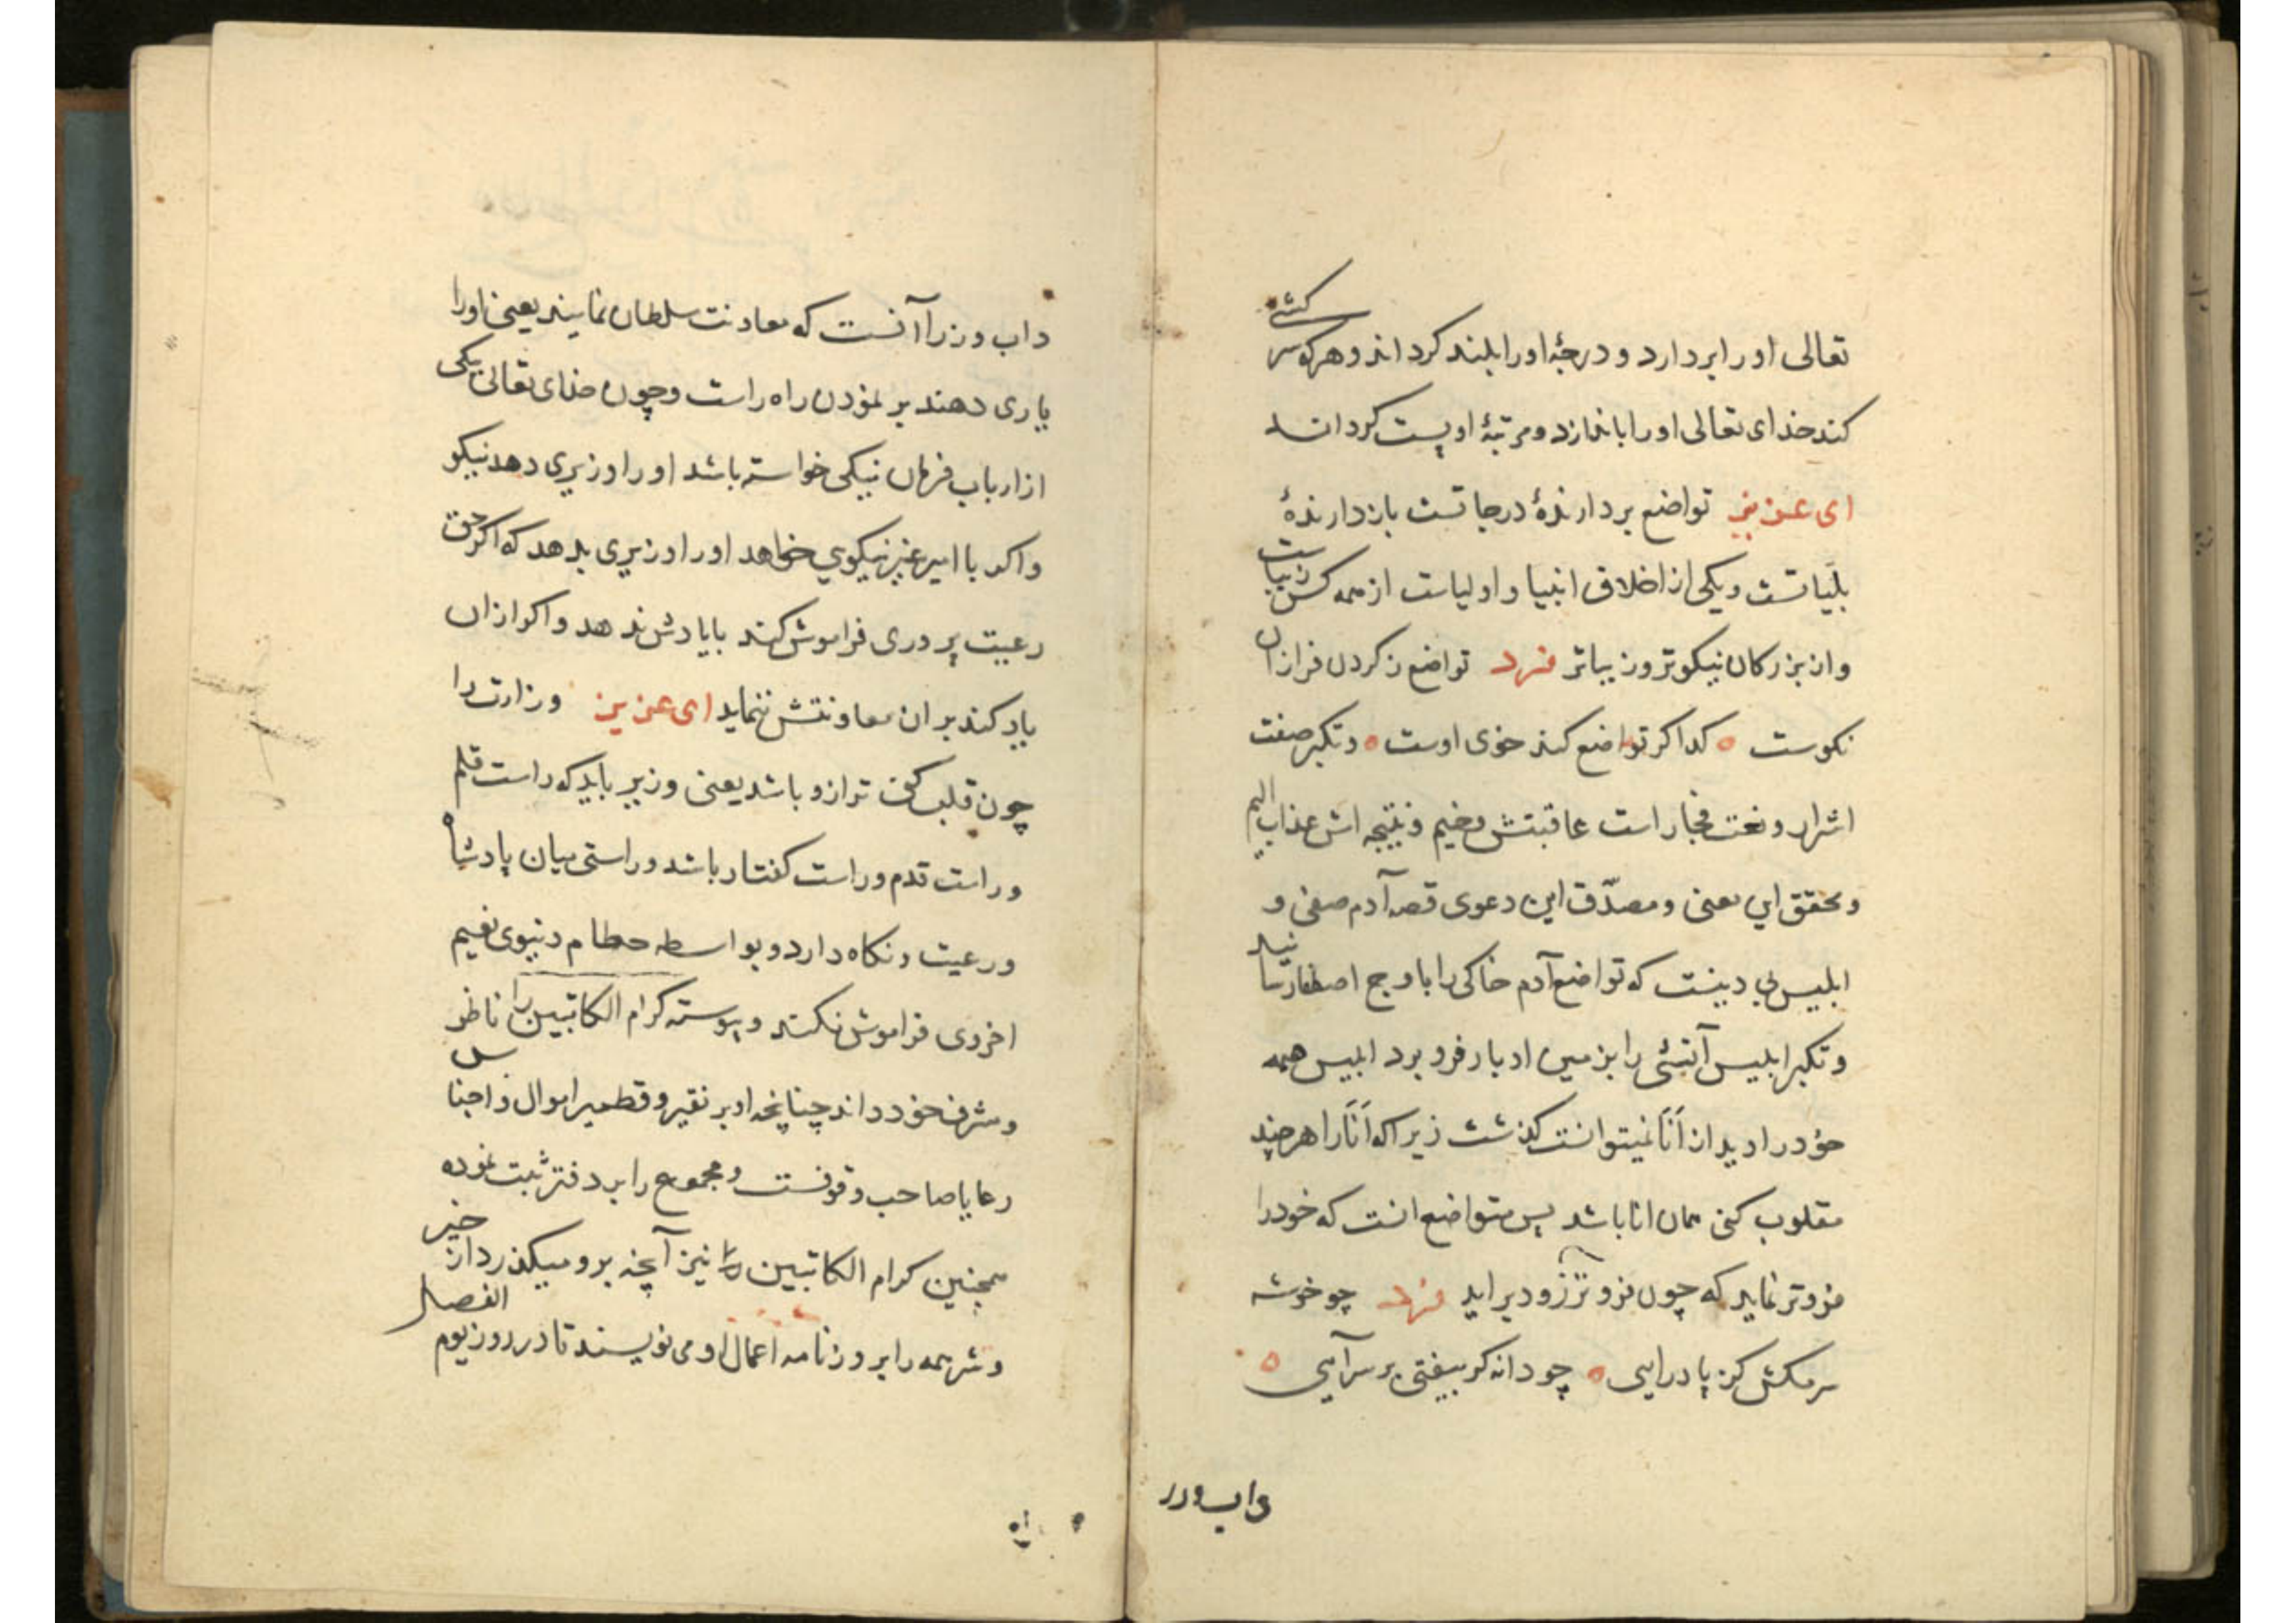 تعالی اورا بردارد و درجهٔ اورا بلند کرداند و هرکه سرکشی
کند خدای تعالی اورا باندازد و مرتبهٔ او پست کرداند
ای عزیز تواضع بردارندهٔ درجاتست بازدارندهٔ
بلیاتست و یکی از اخلاق انبیا و اولیاست از همه کس زیباست
و از بزرکان نیکوتر و زیباتر فرد تواضع ز کردن فرازان
نکوست کدا کر تواضع کند خوی اوست و تکبر صفت
اشرار و نعت فجار است عاقبتش وخیم و نتیجه اش عذاب الیم
و محقق این معنی و مصدّق این دعوی قصه آدم صفی و
ابلیس بی دینست که تواضع آدم خاکی را باوج اصطفا رسانید
و تکبر ابلیس آتشی را بزمین ادبار فرو برد ابلیس همه
خود را دید از اَنَا نمیتوانست کذشت زیرا که اَنَا را هرچند
مقلوب کنی همان انا باشد پس متواضع انست که خود را
فروتر نماید که چون فروتر زودتر براید فرد چو خوشه
سر مکش کز پا درایی چو دانه کر بیفتی بر سر آیی
داب وزر
داب وزرا آنست که معاونت سلطان نمایند یعنی اورا
یاری دهند بر نمودن راه راست و چون خدای تعالی بیکی
از ارباب فرمان نیکی خواسته باشد اورا وزیری دهد نیکو
و اکر با امیر غیر نیکویی خواهد اورا وزیری بدهد که اکر حق
رعیت پروری فراموش کند بایادش ندهد و اکر ازان
یاد کند بر ان معاونتش ننماید ای عزیز وزارت را
چون قلب کنی ترازو باشد یعنی وزیر باید که راست قلم
و راست قدم و راست کفتار باشد و راستی میان پادشاه
و رعیت نکاه دارد و بواسطه حطام دنیوی نعیم
اخروی فراموش نکند و پیوسته کرام الکاتبین را ناظر
و مشرف خود داند چنانچه او بر نقیر و قطمیر اموال و اجناس
رعایا صاحب وقوفست و مجموع را بر دفتر ثبت نموده
همچنین کرام الکاتبین نیز آنچه برو میکذرد از خیر
و شر همه را بروزنامه اعمال او می نویسند تا در روز یوم الفصل